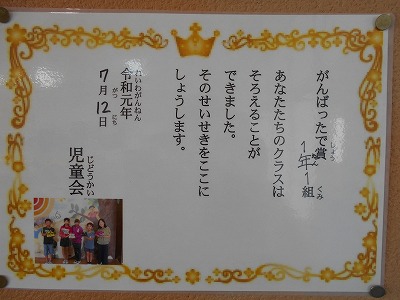 がんばったで賞
1年1組
あなたたちのクラスは
そろえることが
できました。
そのせいせきをここに
しょうします。
令和元年
7月12日
児童会